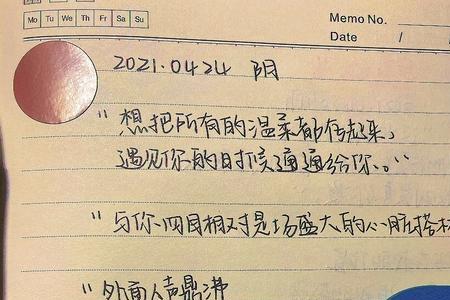 Mo Tu We Th Fr Sa Su
Memo No.
Date / /
2021.04.24 阴
"想把所有的温柔都存起来,
遇见你的时候通通给你。"
"与你四目相对是场盛大的心脏搭
"外面人声鼎沸